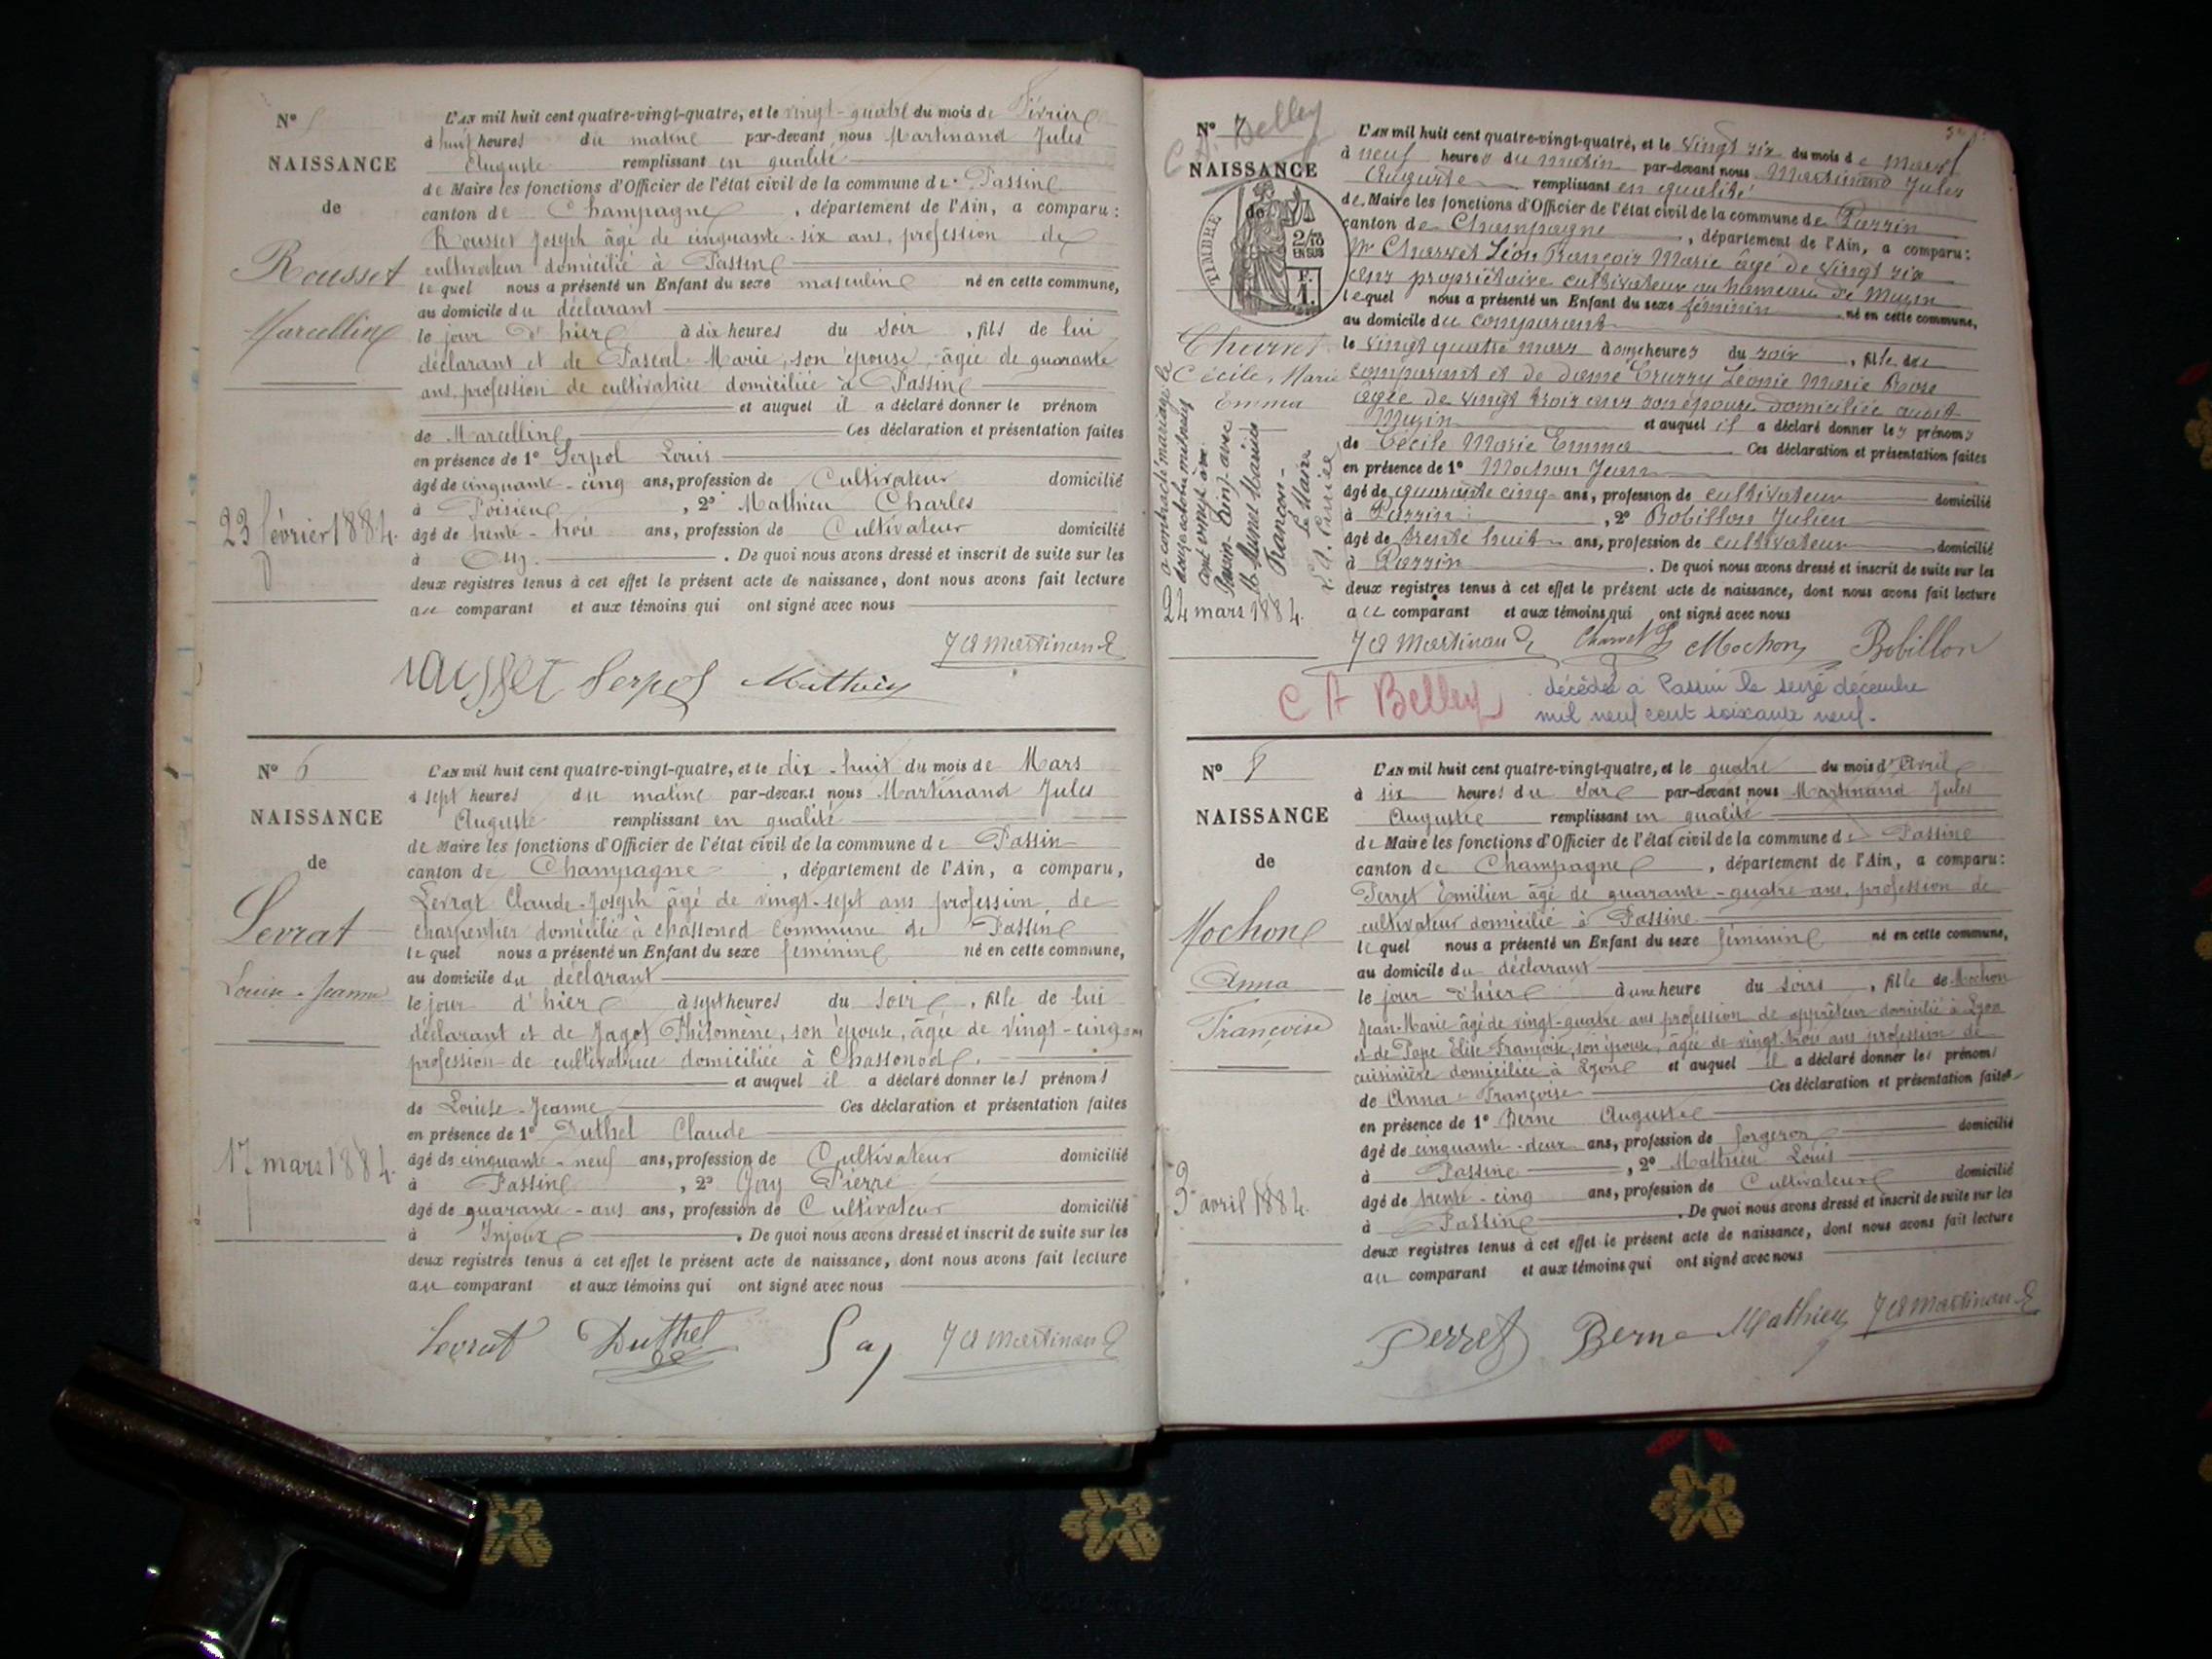 N° 5
NAISSANCE
de
Rousset
Marcellin
23 février 1884.
L'AN mil huit cent quatre-vingt-quatre, et le vingt-quatre du mois de Février
à huit heures du matin par-devant nous Martinand Jules
Auguste remplissant en qualité
de Maire les fonctions d'Officier de l'état civil de la commune de Passin
canton de Champagne, département de l'Ain, a comparu:
Rousset Joseph âgé de cinquante-six ans, profession de
cultivateur domicilié à Passin
lequel nous a présenté un Enfant du sexe masculin né en cette commune,
au domicile du déclarant
le jour d'hier à dix heures du soir, fils de lui
déclarant et de Pascal Marie, son épouse, âgée de quarante
ans, profession de cultivatrice domiciliée à Passin
et auquel il a déclaré donner le prénom
de Marcellin Ces déclaration et présentation faites
en présence de 1° Serpol Louis
âgé de cinquante-cinq ans, profession de Cultivateur domicilié
à Poisieu, 2° Mathieu Charles
âgé de trente-trois ans, profession de Cultivateur domicilié
à . De quoi nous avons dressé et inscrit de suite sur les
deux registres tenus à cet effet le présent acte de naissance, dont nous avons fait lecture
au comparant et aux témoins qui ont signé avec nous
J A Martinand
Rousset Serpol Mathieu
N° 6
NAISSANCE
de
Levrat
Louise-Jeanne
17 mars 1884.
L'AN mil huit cent quatre-vingt-quatre, et le dix-huit du mois de Mars
à sept heures du matin par-devant nous Martinand Jules
Auguste remplissant en qualité
de Maire les fonctions d'Officier de l'état civil de la commune de Passin
canton de Champagne, département de l'Ain, a comparu,
Levrat Claude-Joseph âgé de vingt-sept ans profession de
charpentier domicilié à Chassonod Commune de Passin
lequel nous a présenté un Enfant du sexe féminin né en cette commune,
au domicile du déclarant
le jour d'hier à sept heures du soir, fille de lui
déclarant et de Jagot Philomène, son épouse, âgée de vingt-cinq ans
profession de cultivatrice domiciliée à Chassonod.
et auquel il a déclaré donner les prénoms
de Louise-Jeanne Ces déclaration et présentation faites
en présence de 1° Duthel Claude
âgé de cinquante-neuf ans, profession de Cultivateur domicilié
à Passin, 2° Gay Pierre
âgé de quarante-ans ans, profession de Cultivateur domicilié
à Injoux. De quoi nous avons dressé et inscrit de suite sur les
deux registres tenus à cet effet le présent acte de naissance, dont nous avons fait lecture
au comparant et aux témoins qui ont signé avec nous
Levrat Duthel Gay J A Martinand
N° 7
C A Belley
NAISSANCE
de
TIMBRE
2/10
EN SUS
F.
1.
Charvet
Cécile, Marie
Emma
a contracté mariage le
douze octobre mil neuf
cent vingt
avec
M
Françon
Le Maire
24 mars 1884.
L'AN mil huit cent quatre-vingt-quatre, et le vingt six du mois de mars
à neuf heures du matin par-devant nous Martinand Jules
Auguste remplissant en qualité
de Maire les fonctions d'Officier de l'état civil de la commune de Passin
canton de Champagne, département de l'Ain, a comparu:
Mr Charvet Léon François Marie âgé de vingt six
ans propriétaire cultivateur au hameau de Muzin
lequel nous a présenté un Enfant du sexe féminin né en cette commune,
au domicile du comparant
le vingt quatre mars à onze heures du soir, fille du
comparant et de dame Léonie Marie
âgée de vingt trois ans son épouse domiciliée audit
Muzin et auquel il a déclaré donner les prénoms
de Cécile Marie Emma Ces déclaration et présentation faites
en présence de 1° Mochon Jean
âgé de quarante cinq ans, profession de cultivateur domicilié
à Passin, 2° Bobillon Julien
âgé de trente huit ans, profession de cultivateur domicilié
à Passin. De quoi nous avons dressé et inscrit de suite sur les
deux registres tenus à cet effet le présent acte de naissance, dont nous avons fait lecture
au comparant et aux témoins qui ont signé avec nous
J A Martinand Charvet L Mochon Bobillon
C A Belley
décédée à Passin le seize décembre
mil neuf cent soixante neuf.
N° 8
NAISSANCE
de
Mochon
Anna
Françoise
3 avril 1884.
L'AN mil huit cent quatre-vingt-quatre, et le quatre du mois d'Avril
à six heures du soir par-devant nous Martinand Jules
Auguste remplissant en qualité
de Maire les fonctions d'Officier de l'état civil de la commune de Passin
canton de Champagne, département de l'Ain, a comparu:
Perret Emilien âgé de quarante-quatre ans, profession de
cultivateur domicilié à Passin
lequel nous a présenté un Enfant du sexe féminin né en cette commune,
au domicile du déclarant
le jour d'hier à une heure du soir, fille de Mochon
Jean-Marie âgé de vingt-quatre ans profession de apprêteur domicilié à Lyon
et de Pape Elise Françoise, son épouse, âgée de vingt-trois ans profession de
cuisinière domiciliée à Lyon et auquel il a déclaré donner les prénoms
de Anna-Françoise Ces déclaration et présentation faites
en présence de 1° Berne Auguste
âgé de cinquante-deux ans, profession de forgeron domicilié
à Passin, 2° Mathieu Louis
âgé de trente-cinq ans, profession de Cultivateur domicilié
à Passin. De quoi nous avons dressé et inscrit de suite sur les
deux registres tenus à cet effet le présent acte de naissance, dont nous avons fait lecture
au comparant et aux témoins qui ont signé avec nous
Perret Berne Mathieu J A Martinand